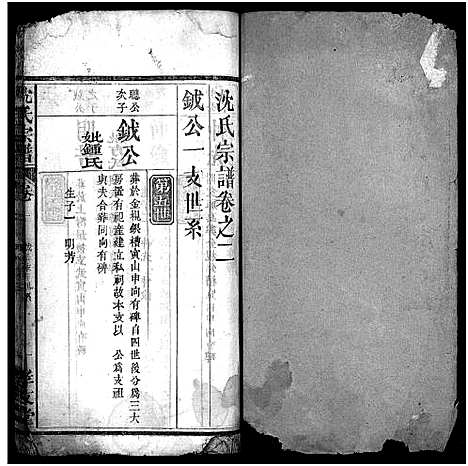 沈氏宗譜卷之二
鉞公一支世系
聽公
次子
鉞公
妣鍾氏
第五世
葬於金規銀槽寅山申向有碑自四世後分為三大
房儘有祀產建立私祠故本支以 公為支祖
與夫合葬同向有碑
生子一 明芳
沈氏宗譜
卷